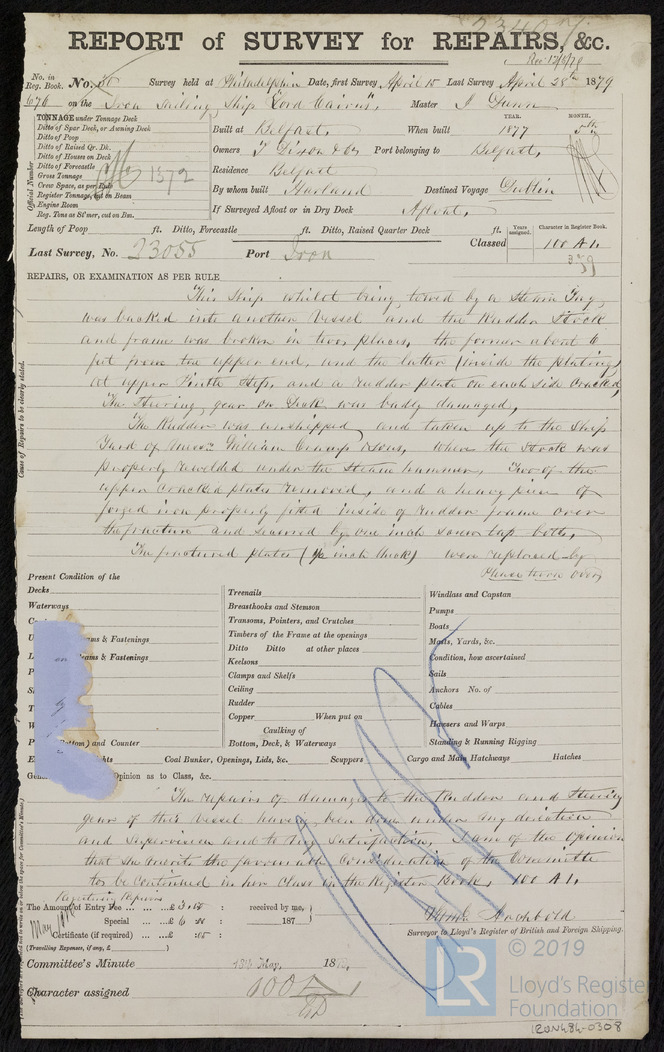 23407
REPORT of SURVEY for REPAIRS, &c.
No. in Reg. Book. No. 56 Survey held at Philadelphia Date, first Survey April 15 Last Survey April 28th 1879
676 on the Iron Sailing Ship "Lord Cairns", Master J Dunn
TONNAGE under Tonnage Deck
Ditto of Spar Deck, or Awning Deck
Ditto of Poop
Ditto of Raised Qr. Dk.
Ditto of Houses on Deck
Ditto of Forecastle
Gross Tonnage 1372
Crew Space, as per Rule
Register Tonnage, cut on Beam
Engine Room
Reg. Tons as St'mer, cut on Bm.
Official Number
YEAR. MONTH.
Built at Belfast, When built 1877 5th
Owners T Dixon & Co Port belonging to Belfast,
Residence Belfast
By whom built Harland Destined Voyage Dublin
If Surveyed Afloat or in Dry Dock Afloat,
Length of Poop ft. Ditto, Forecastle ft. Ditto, Raised Quarter Deck ft.
Last Survey, No. 23055 Port Iron Classed
Years assigned. Character in Register Book.
100 A1.
REPAIRS, OR EXAMINATION AS PER RULE
This Ship whilst being towed by a Steam Tug,
was backed into another Vessel and the Rudder Stock
and frame was broken in two places, the former about 6
feet from the upper end, and the latter (inside the plating)
at upper Pintle Step, and a rudder plate on each side cracked,
The Steering gear on Deck was badly damaged,
The Rudder was unshipped and taken up to the Ship
Yard of Messrs William Cramp & Sons, where the Stock was
properly rewelded under the steam hammer, Two of the
upper cracked plates removed, and a heavy piece of
forged iron properly fitted inside of rudder frame over
the fracture and secured by one inch screw tap bolts,
The fractured plates ( inch thick) were replaced by
Please turn over
Cause of Repairs to be clearly stated.
Present Condition of the
Decks
Waterways
Beams & Fastenings
Beams & Fastenings
(Bottom) and Counter
Treenails
Breasthooks and Stemson
Transoms, Pointers, and Crutches
Timbers of the Frame at the openings
Ditto Ditto at other places
Keelsons
Clamps and Shelfs
Ceiling
Rudder
Copper When put on
Caulking of
Bottom, Deck, & Waterways
Windlass and Capstan
Pumps
Boats
Masts, Yards, &c.
Condition, how ascertained
Sails
Anchors No. of
Cables
Hawsers and Warps
Standing & Running Rigging
Coal Bunker, Openings, Lids, &c. Scuppers Cargo and Main Hatchways Hatches
Opinion as to Class, &c.
The repairs of damages to the Rudder and Steering
gear of this Vessel having been done under my direction
and supervision and to my satisfaction, I am of the opinion
that she merits the favorable consideration of the Committee
to be continued in her Class in the Register Book, 100 A1.
Repairs
The Amount of Entry Fee £ received by me,
Special £ 187
Certificate (if required) £
(Travelling Expenses, if any, £ )
Archbold
Surveyor to Lloyd's Register of British and Foreign Shipping.
Committee's Minute 13th May, 187
Character assigned 100 A 1
© 2019
LR
Lloyd's Register
Foundation
IRON484-0308